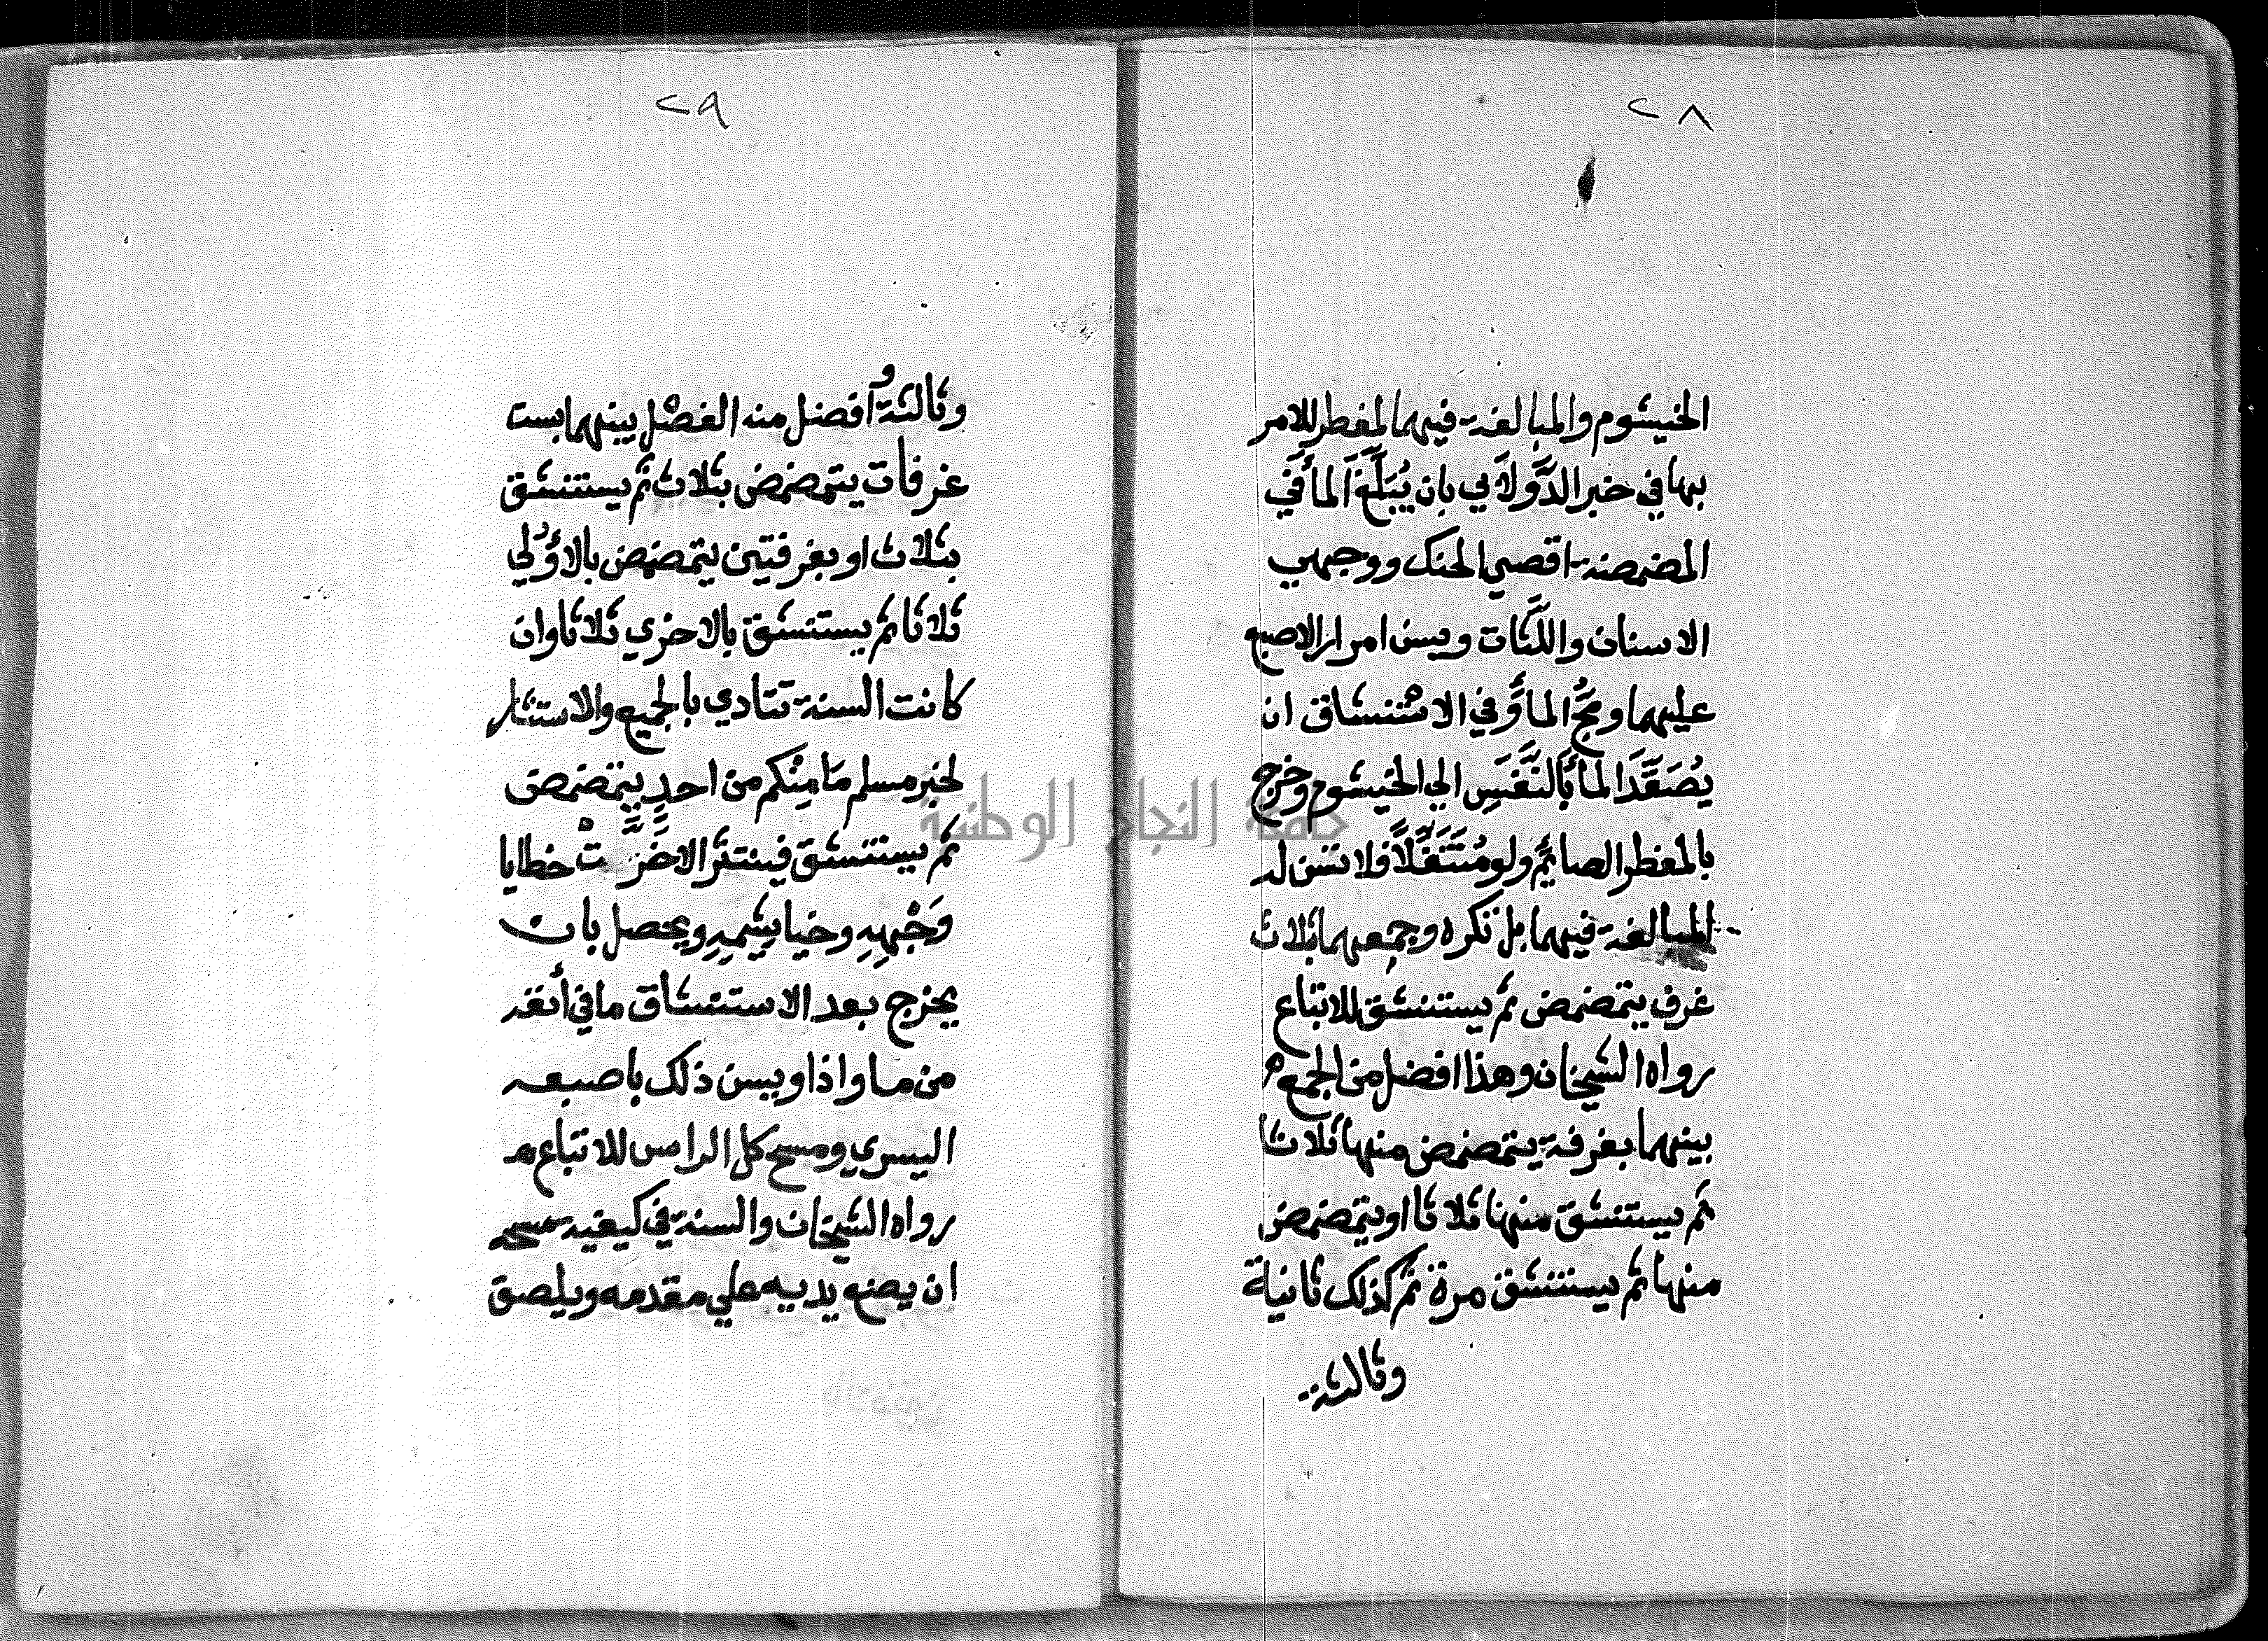 ٢٨
الخيشوم والمبالغة فيهما لمفطر للامر
بها في خبر الدَّولَابي بان يُبَلِّغَ الماَ في
المضمضة اقصي الحنك ووجهي
الاسنان واللَّثَات ويسن امرار الاصبع
عليهما ومَجُّ الماَ وفي الاستنشاق ان
يُصَعِّدَ الماَ بِالنَّفَسِ الي الخيشوم وخرج
بالمفطر الصايمُ ولو مُتَنَفِّلًا فلا تسن له
المبالغة فيهما بل تكره وجمعهما بثلاث
غرف يتمضمض ثم يستنشق للاتباع
رواه الشيخان وهذا افضل من الجمع
بينهما بغرفة يتمضمض منها ثلاثا
ثم يستنشق منها ثلاثا او يتمضمض
منها ثم يستنشق مرة ثم كذلك ثانية
وثالثة
٢٩
وثالثة وافضل منه الفصل بينهما بست
غرفات يتمضمض بثلاث ثم يستنشق
بثلاث او بغرفتين يتمضمض بالاُوْلي
ثلاثا ثم يستنشق بالاخري ثلاثا وان
كانت السنة تتادي بالجميع والاستنثار
لخبر مسلم مَا مِنْكم من احدٍ يتمضمض
ثم يستنشق فينتثر الا خَرَّتْ خطايا
وَجْهِهِ وخياشيمِهِ ويحصل بان
يخرج بعد الاستنشاق ما في أنفه
من ما واذا ويسن ذلك باصبعه
اليسري ومسح كل الراس للاتباع
رواه الشيخان والسنة في كيفية مسحه
ان يضع يديه علي مقدمه ويلصق
جامعة النجاح الوطنية